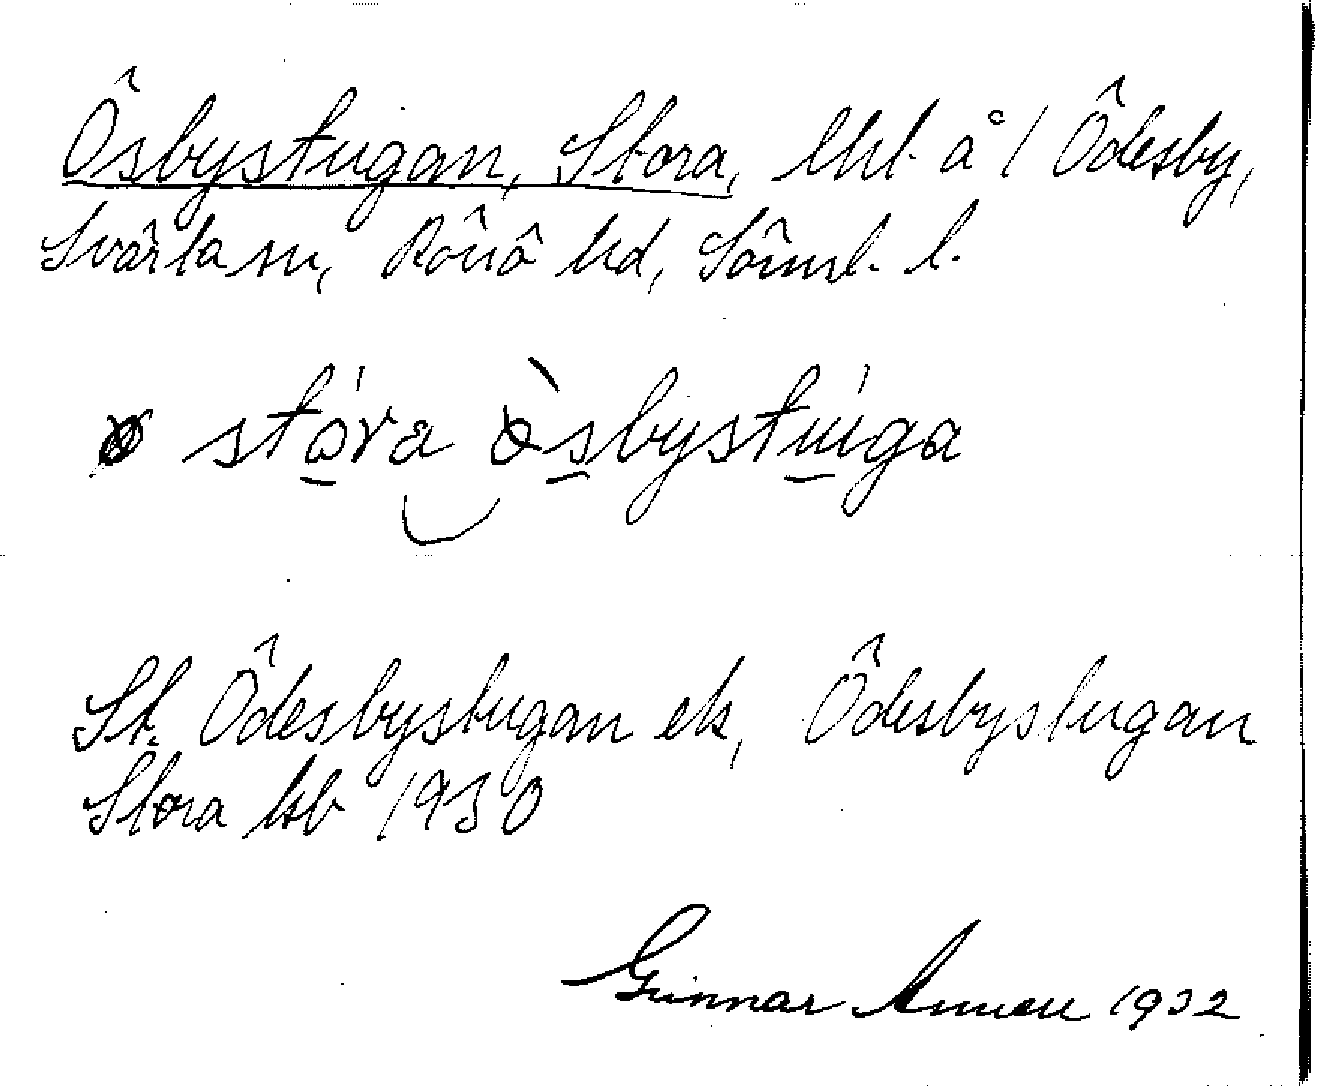 Ösbystugan, Stora, lht. å / Ödesby,
Svärta sn, Rönö hd, Söml. l.
stóra òsbystúga
St. Ödesbystugan ek, Ödesbystugan
Stora ksb 1930
Gunnar 1932